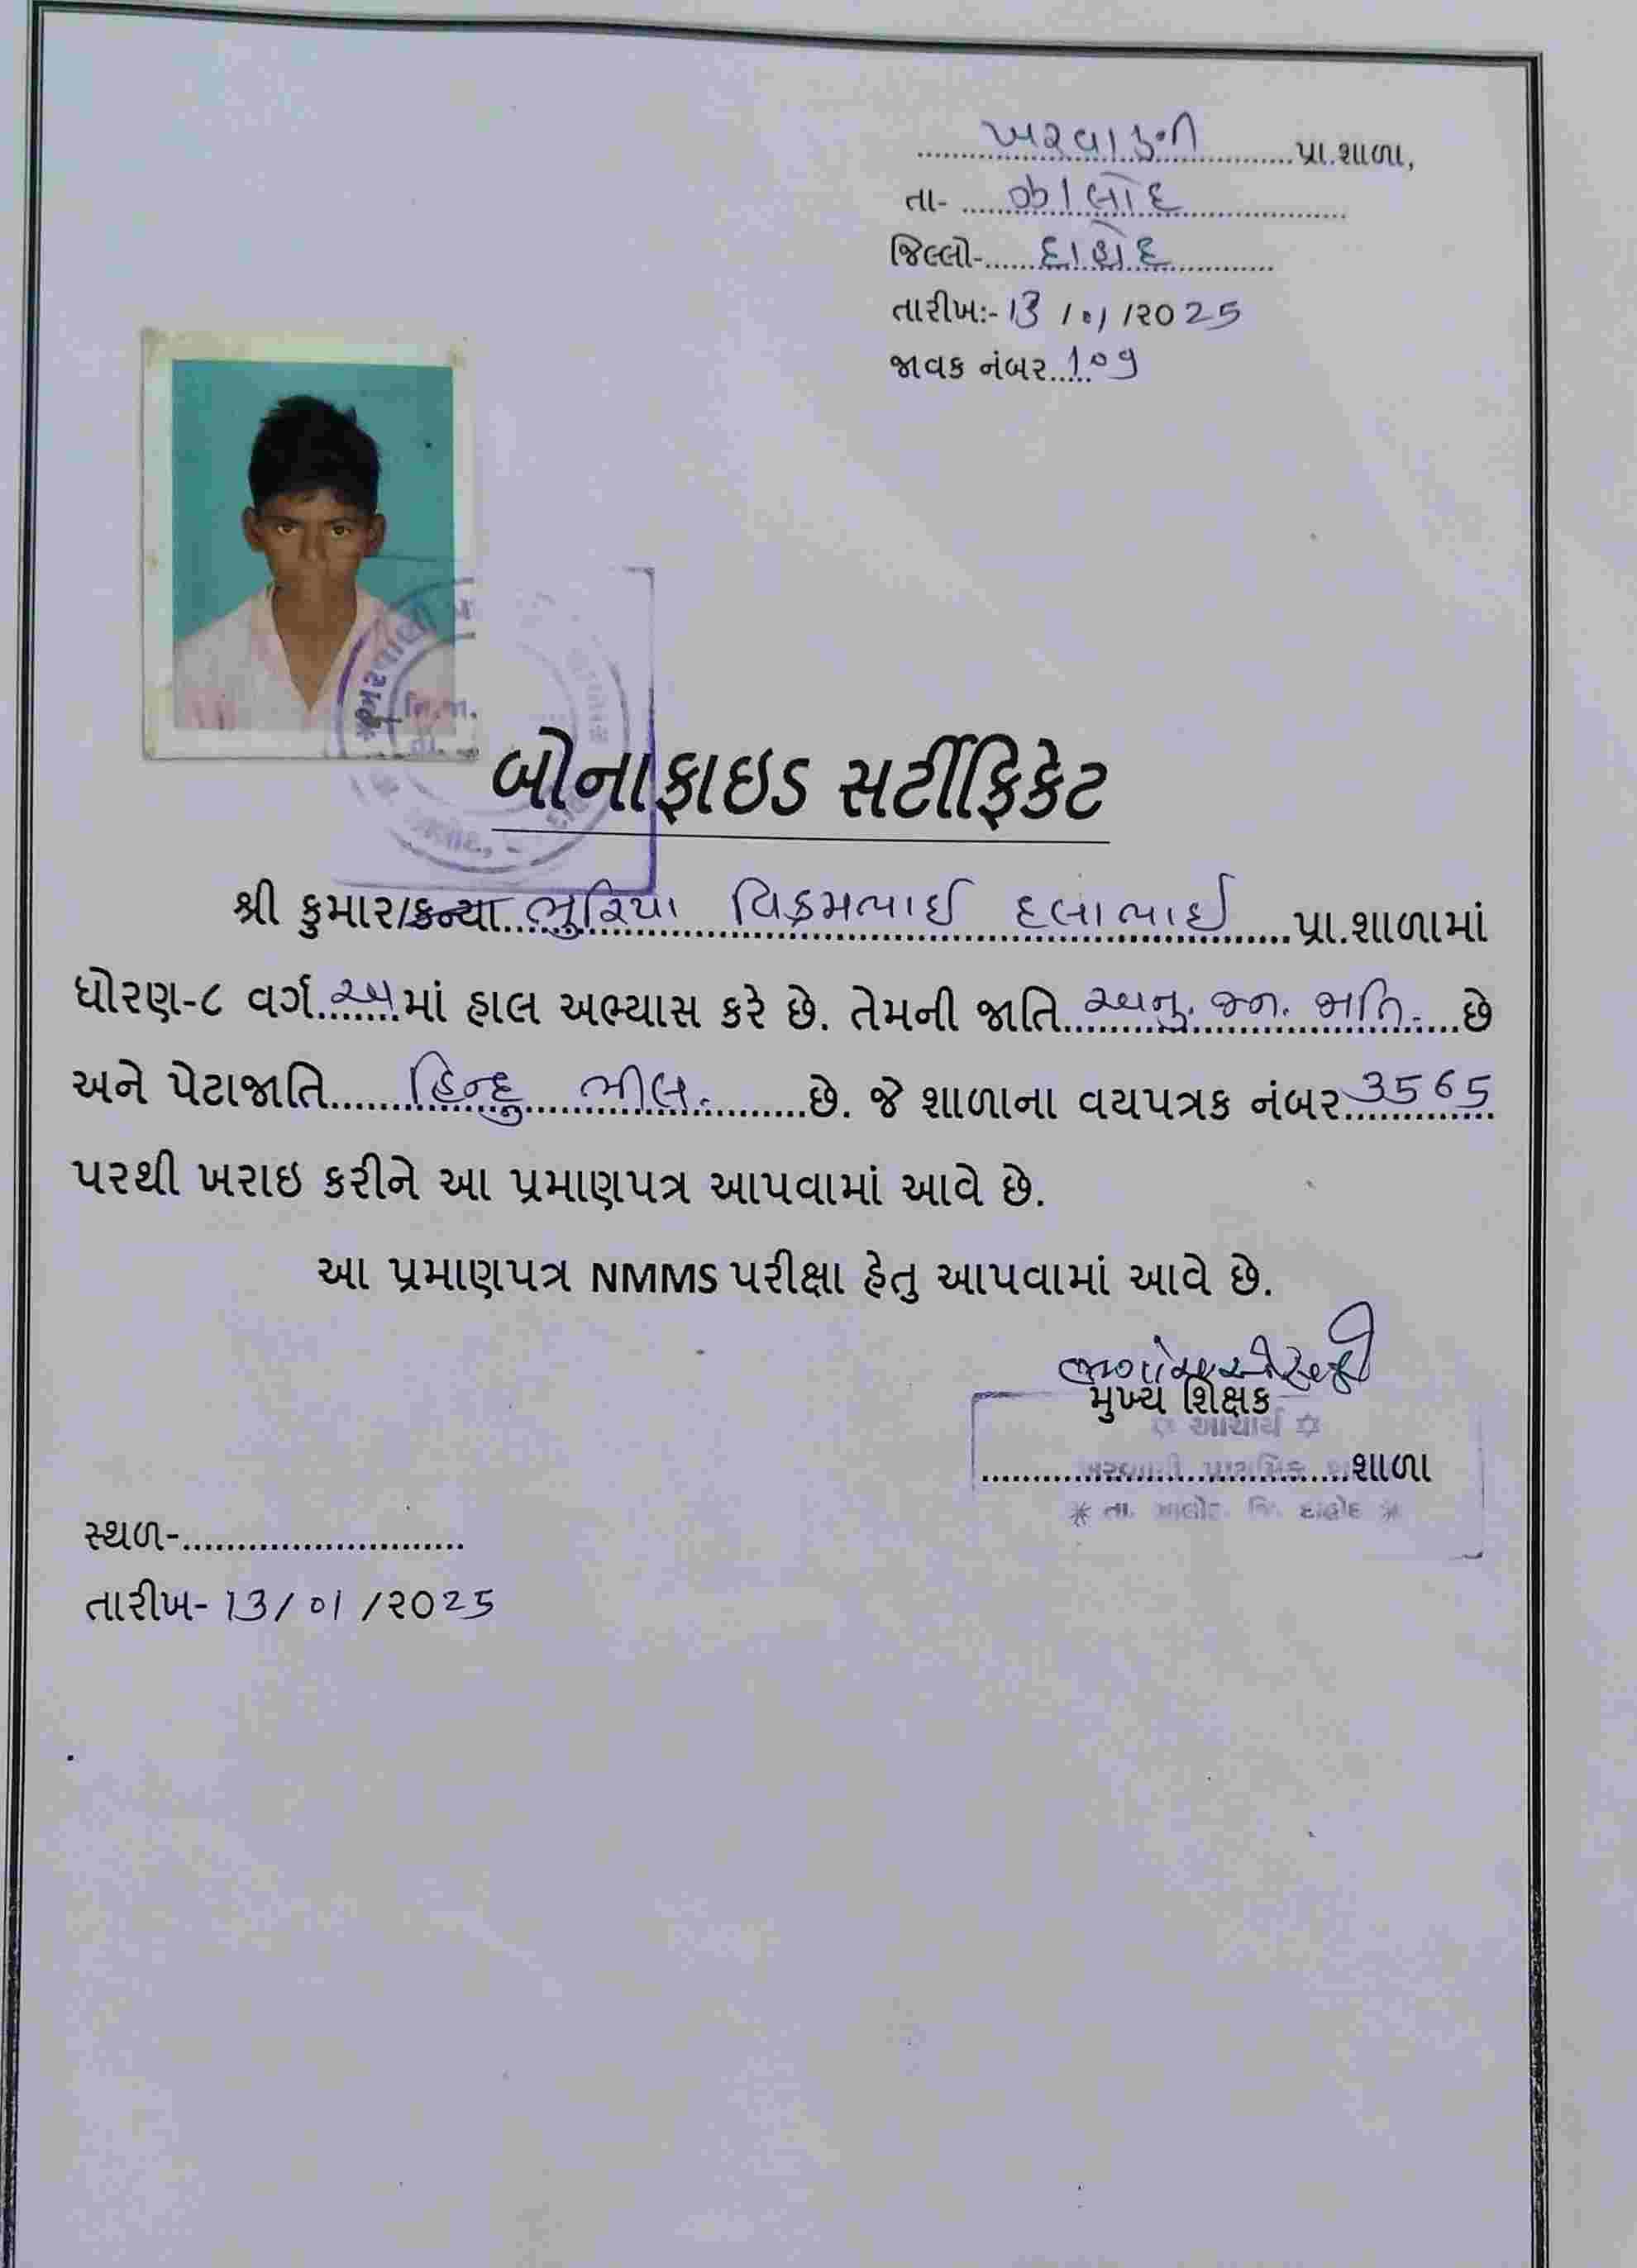 ખરવાણી પ્રા.શાળા,
તા- ઝાલોદ
જિલ્લો- દાહોદ
તારીખ:- 13/01/૨૦25
જાવક નંબર 109
બોનાફાઇડ સર્ટીફિકેટ
શ્રી કુમાર/કન્યા ભુરિયા વિક્રમભાઈ દલાભાઈ પ્રા.શાળામાં
ધોરણ-૮ વર્ગ અ માં હાલ અભ્યાસ કરે છે. તેમની જાતિ અનુ. જન. જાતિ. છે
અને પેટાજાતિ હિન્દુ ભીલ. છે. જે શાળાના વયપત્રક નંબર 3565
પરથી ખરાઇ કરીને આ પ્રમાણપત્ર આપવામાં આવે છે.
આ પ્રમાણપત્ર NMMS પરીક્ષા હેતુ આપવામાં આવે છે.
મુખ્ય શિક્ષક
આચાર્ય
શાળા
તા. ઝાલોદ જિ. દાહોદ
સ્થળ-
તારીખ- 13/01/૨૦25